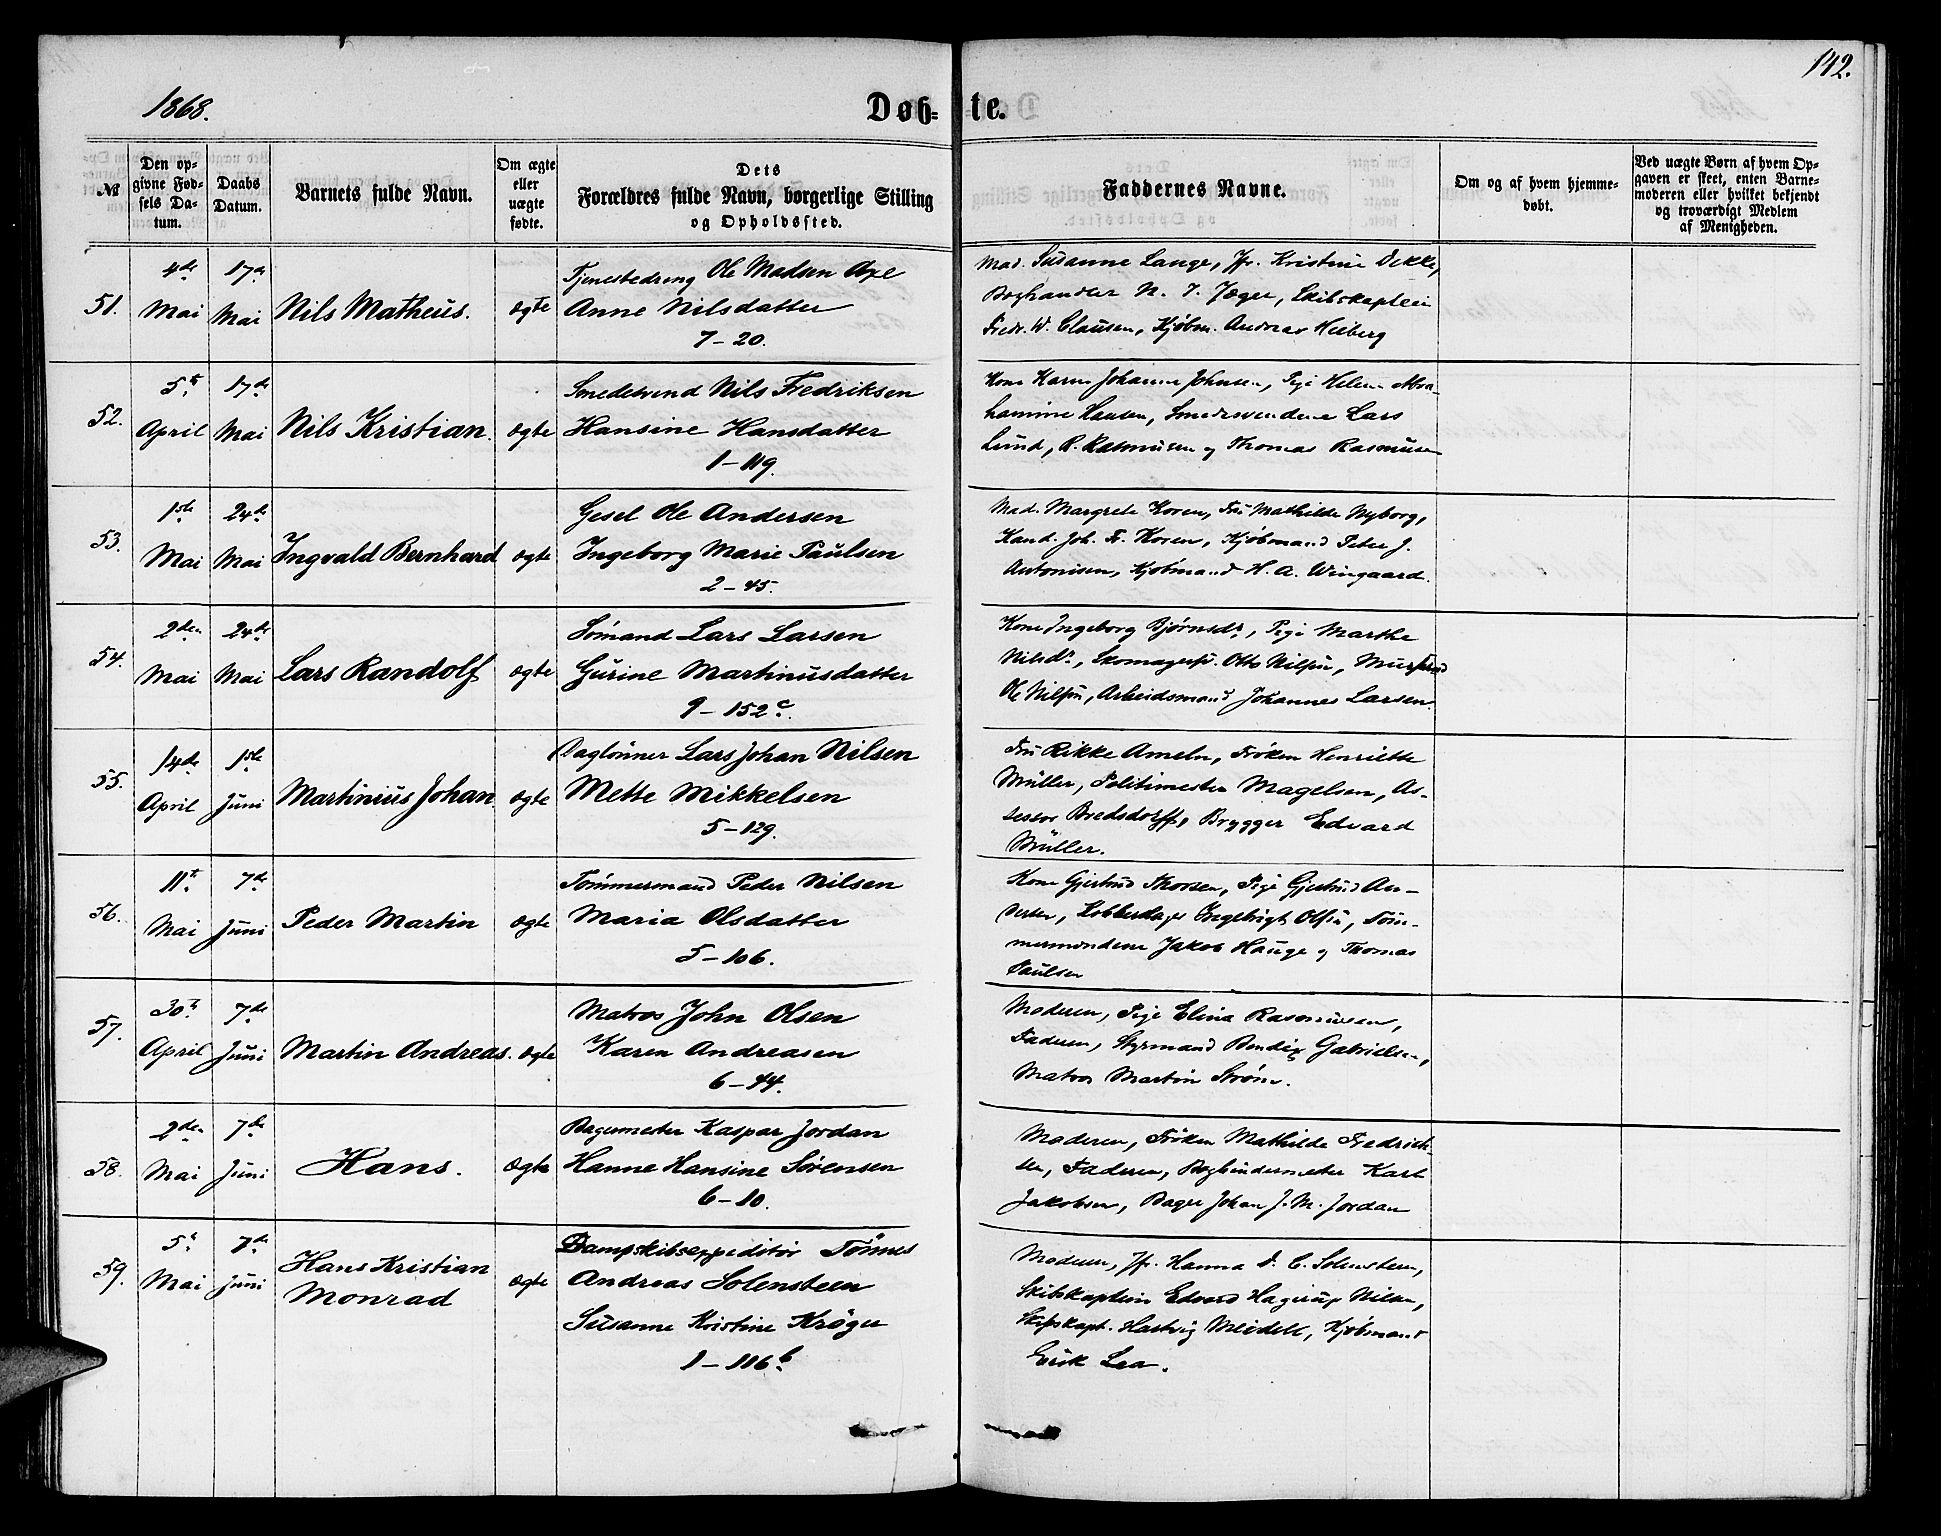 142.
1868.
Døb- te.
№
Den opgivne Fødsels Datum.
Daabs Datum.
Barnets fulde Navn.
Om ægte eller uægte fødte.
Dets
Forældres fulde Navn, borgerlige Stilling
og Opholdssted.
Faddernes Navne.
Om og af hvem hjemmedøbt.
Ved uægte Børn af hvem Opgaven er skeet, enten Barnemoderen eller hvilket bekjendt og troværdigt Medlem af Menigheden.
51. 4de Mai 17de Mai Nils Matheus. ægte
Tjenestedreng Ole Madsen Axe
Anne Nilsdatter
7-20.
Mad. Susanne Lange, Jfr. Kristine Dekke,
Boghandler N. J. Jæger, Skibskaptein
Fredr. W. Clausen, Kjøbm. Andreas Heiberg
52. 5te April 17de Mai Nils Kristian. ægte
Smedesvend Nils Fredriksen
Hansine Hansdatter
1-119.
Kone Karen Johanne Johnsen, Pige Helene Abra-
hamine Hansen, Smedesvendene Lars
Lund, R. Rasmusen og Thomas Rasmusen
53. 1ste Mai 24de Mai Ingvald Bernhard ægte
Gesel Ole Andersen
Ingeborg Marie Paulsen
2-45.
Mad. Margrete Koren, Fru Mathilde Nyborg,
Kand. Joh. Fr. Koren, Kjøbmand Peter J.
Antonisen, Kjøbmand H. A. Wingaard.
54. 2den Mai 24de Mai Lars Randolf ægte
Sømand Lars Larsen
Gurine Martinusdatter
9-152c.
Kone Ingeborg Bjørnsdr, Pige Marthe
Nilsdr., Skomagersv. Otto Nilsen, Mursvend
Ole Nilsen, Arbeidsmand Johannes Larsen.
55. 14de April 1ste Juni Martinius Johan ægte
Daglønner Lars Johan Nilsen
Mette Mikkelsen
5-129.
Fru Rikke Ameln, Frøken Henriette
Müller, Politimester Magelsen, As-
sessor Bredsdorff, Brygger Edvard
Müller.
56. 11te Mai 7de Juni Peder Martin ægte
Tømmermand Peder Nilsen
Maria Olsdatter
5-106.
Kone Gjertrud Thorsen, Pige Gjertrud An-
dersen, Kobberslager Ingebrigt Olsen, Tøm-
mermændene Jakob Hauge og Thomas
Paulsen
57. 30te April 7de Juni Martin Andreas. ægte
Matros John Olsen
Karen Andreasen
6-44.
Moderen, Pige Elina Rasmusen,
Faderen, Styrmand Bendix Gabrielsen,
Matros Martin Strøm.
58. 2den Mai 7de Juni Hans. ægte
Bagermester Kaspar Jordan
Hanne Hansine Sørensen
6-10.
Moderen, Frøken Mathilde Fredrick-
sen, Faderen, Bogbindermester Karl
Jakobsen, Bager Johan J. M. Jordan
59. 5te Mai 7de Juni Hans Kristian Monrad ægte
Dampskibsexpeditør Tønnes
Andreas Solensteen
Susanne Kristine Krøger
1-116b.
Moderen, Jfr. Hanna D. C. Solensteen,
Skibskaptein Edvard Hagerup Nilsen,
Skibskapt. Hartvig Meidell, Kjøbmand
Erik Lea.